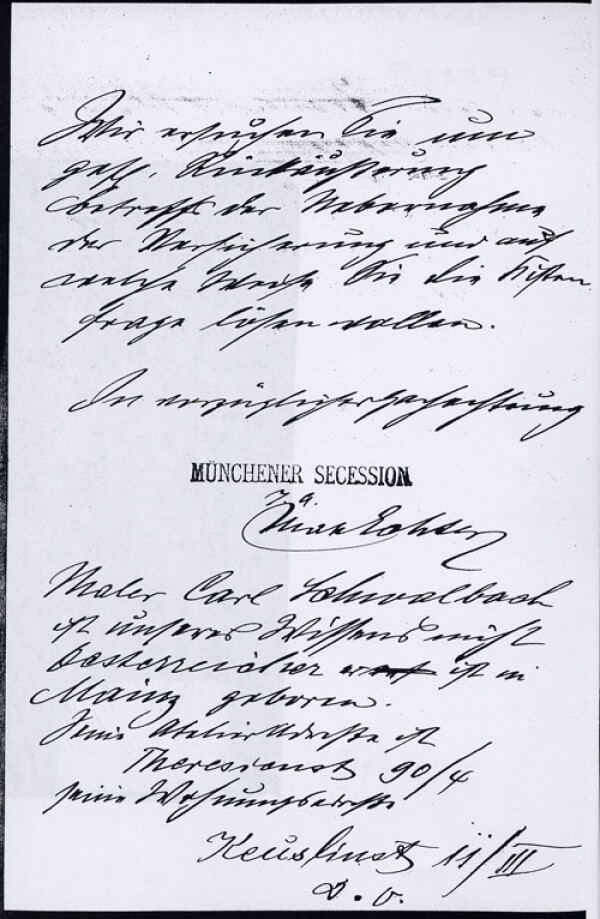 Wir ersuchen Sie um
gefl. Rückäußerung
betreffs der Uebernahme
der Versicherung und auf
welche Weise Sie die Kisten
frage lösen wollen.
In vorzüglicher Hochachtung
MÜNCHENER SECESSION
I. A.
Maler Carl Schwalbach
ist unseres Wissens nicht
Oesterreicher ist in
Mainz geboren.
Seine Atelieradresse ist
Theresienst 90/4
seine Wohnungsadresse
11/III